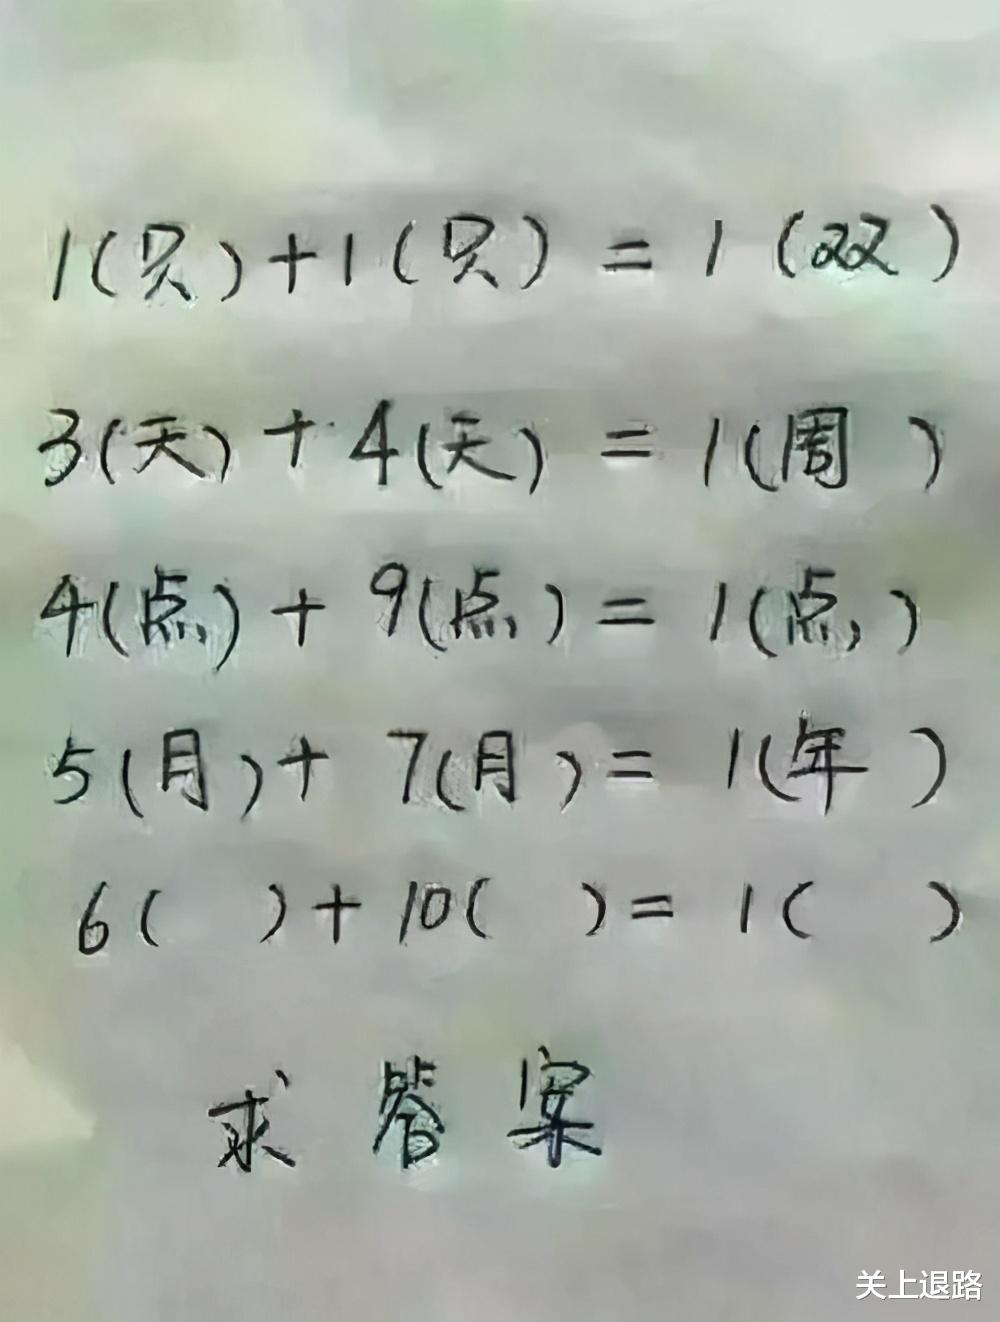 1(只)+1(只)=1(双)
3(天)+4(天)=1(周)
4(点)+9(点)=1(点)
5(月)+7(月)=1(年)
6( )+10( )=1( )
求答案
关上退路